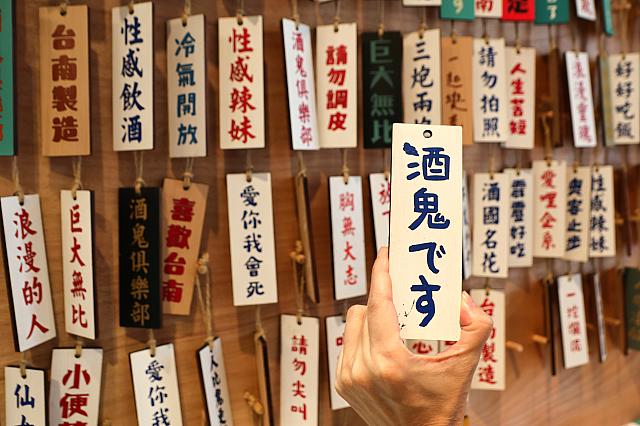 台南製造
性感飲酒
冷氣開放
性感辣妹
酒鬼俱樂部
請勿調皮
巨大無比
三炮兩
請勿拍照
人生苦短
浪漫重機
好好吃飯
酒鬼です
浪漫的人
巨大無比
酒鬼俱樂部
喜歡台南
愛你我會死
胸無大志
酒國名花
霹靂好吃
愛哩金系
奧客止步
性感辣妹
仙女
小便
愛你我
請勿尖叫
台南製造